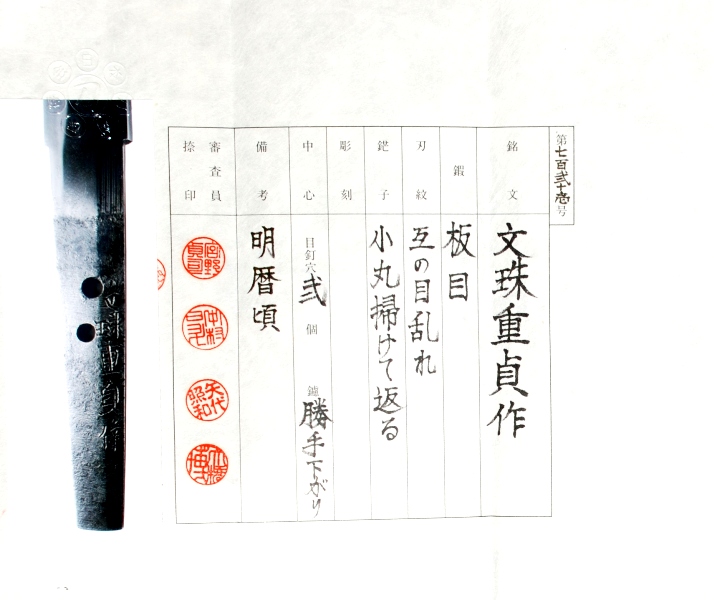 第七百弐十壱号
銘文
文珠重貞作
鍜
板目
刃紋
互の目乱れ
鋩子
小丸掃けて返る
彫刻
中心
目釘穴 弐 個
鑢 勝手下がり
備考
明暦頃
審査員
捺印
宮野貞司
中村
矢代昭和
文珠重貞作